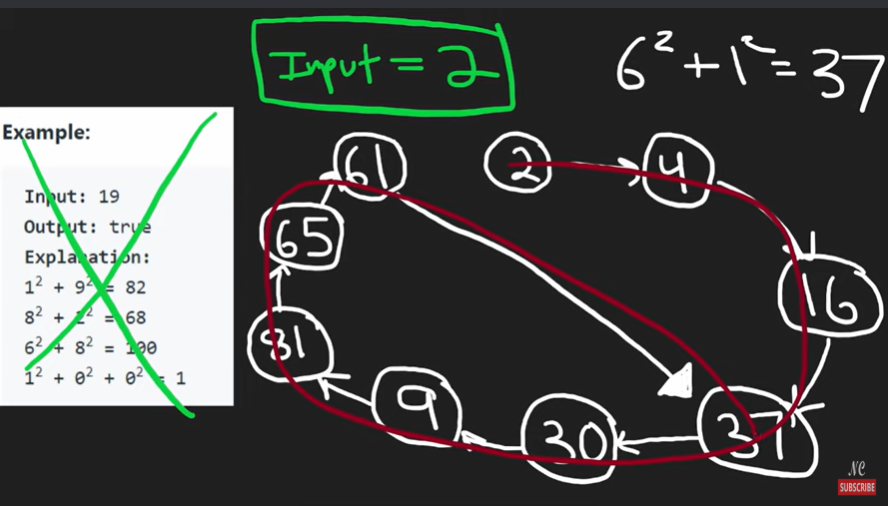 Input = 2
6² + 1² = 37
Example:
Input: 19
Output: true
Explanation:
1² + 9² = 82
8² + 2² = 68
6² + 8² = 100
1² + 0² + 0² = 1
61
2
4
65
16
81
9
30
37
NC
SUBSCRIBE